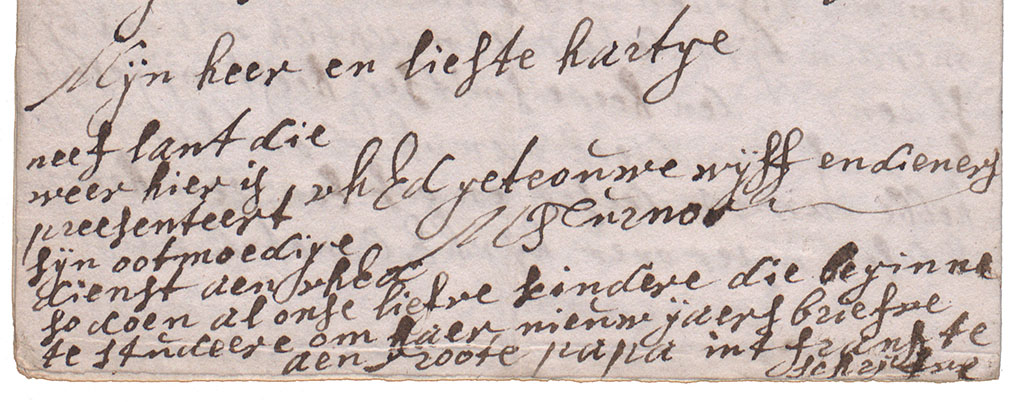 Mijn heer en liefste hartge
neef lant die
weer hier is
preesenteert
sijn ootmoedige
dienst aen uhEd
uhEd getrouwe wijff en dieners
M Turnor
so doen al onse liefve kindere die beginne
te studeere om haer nieuwjaers briefve
aen groote papa int frans te
schrijfve